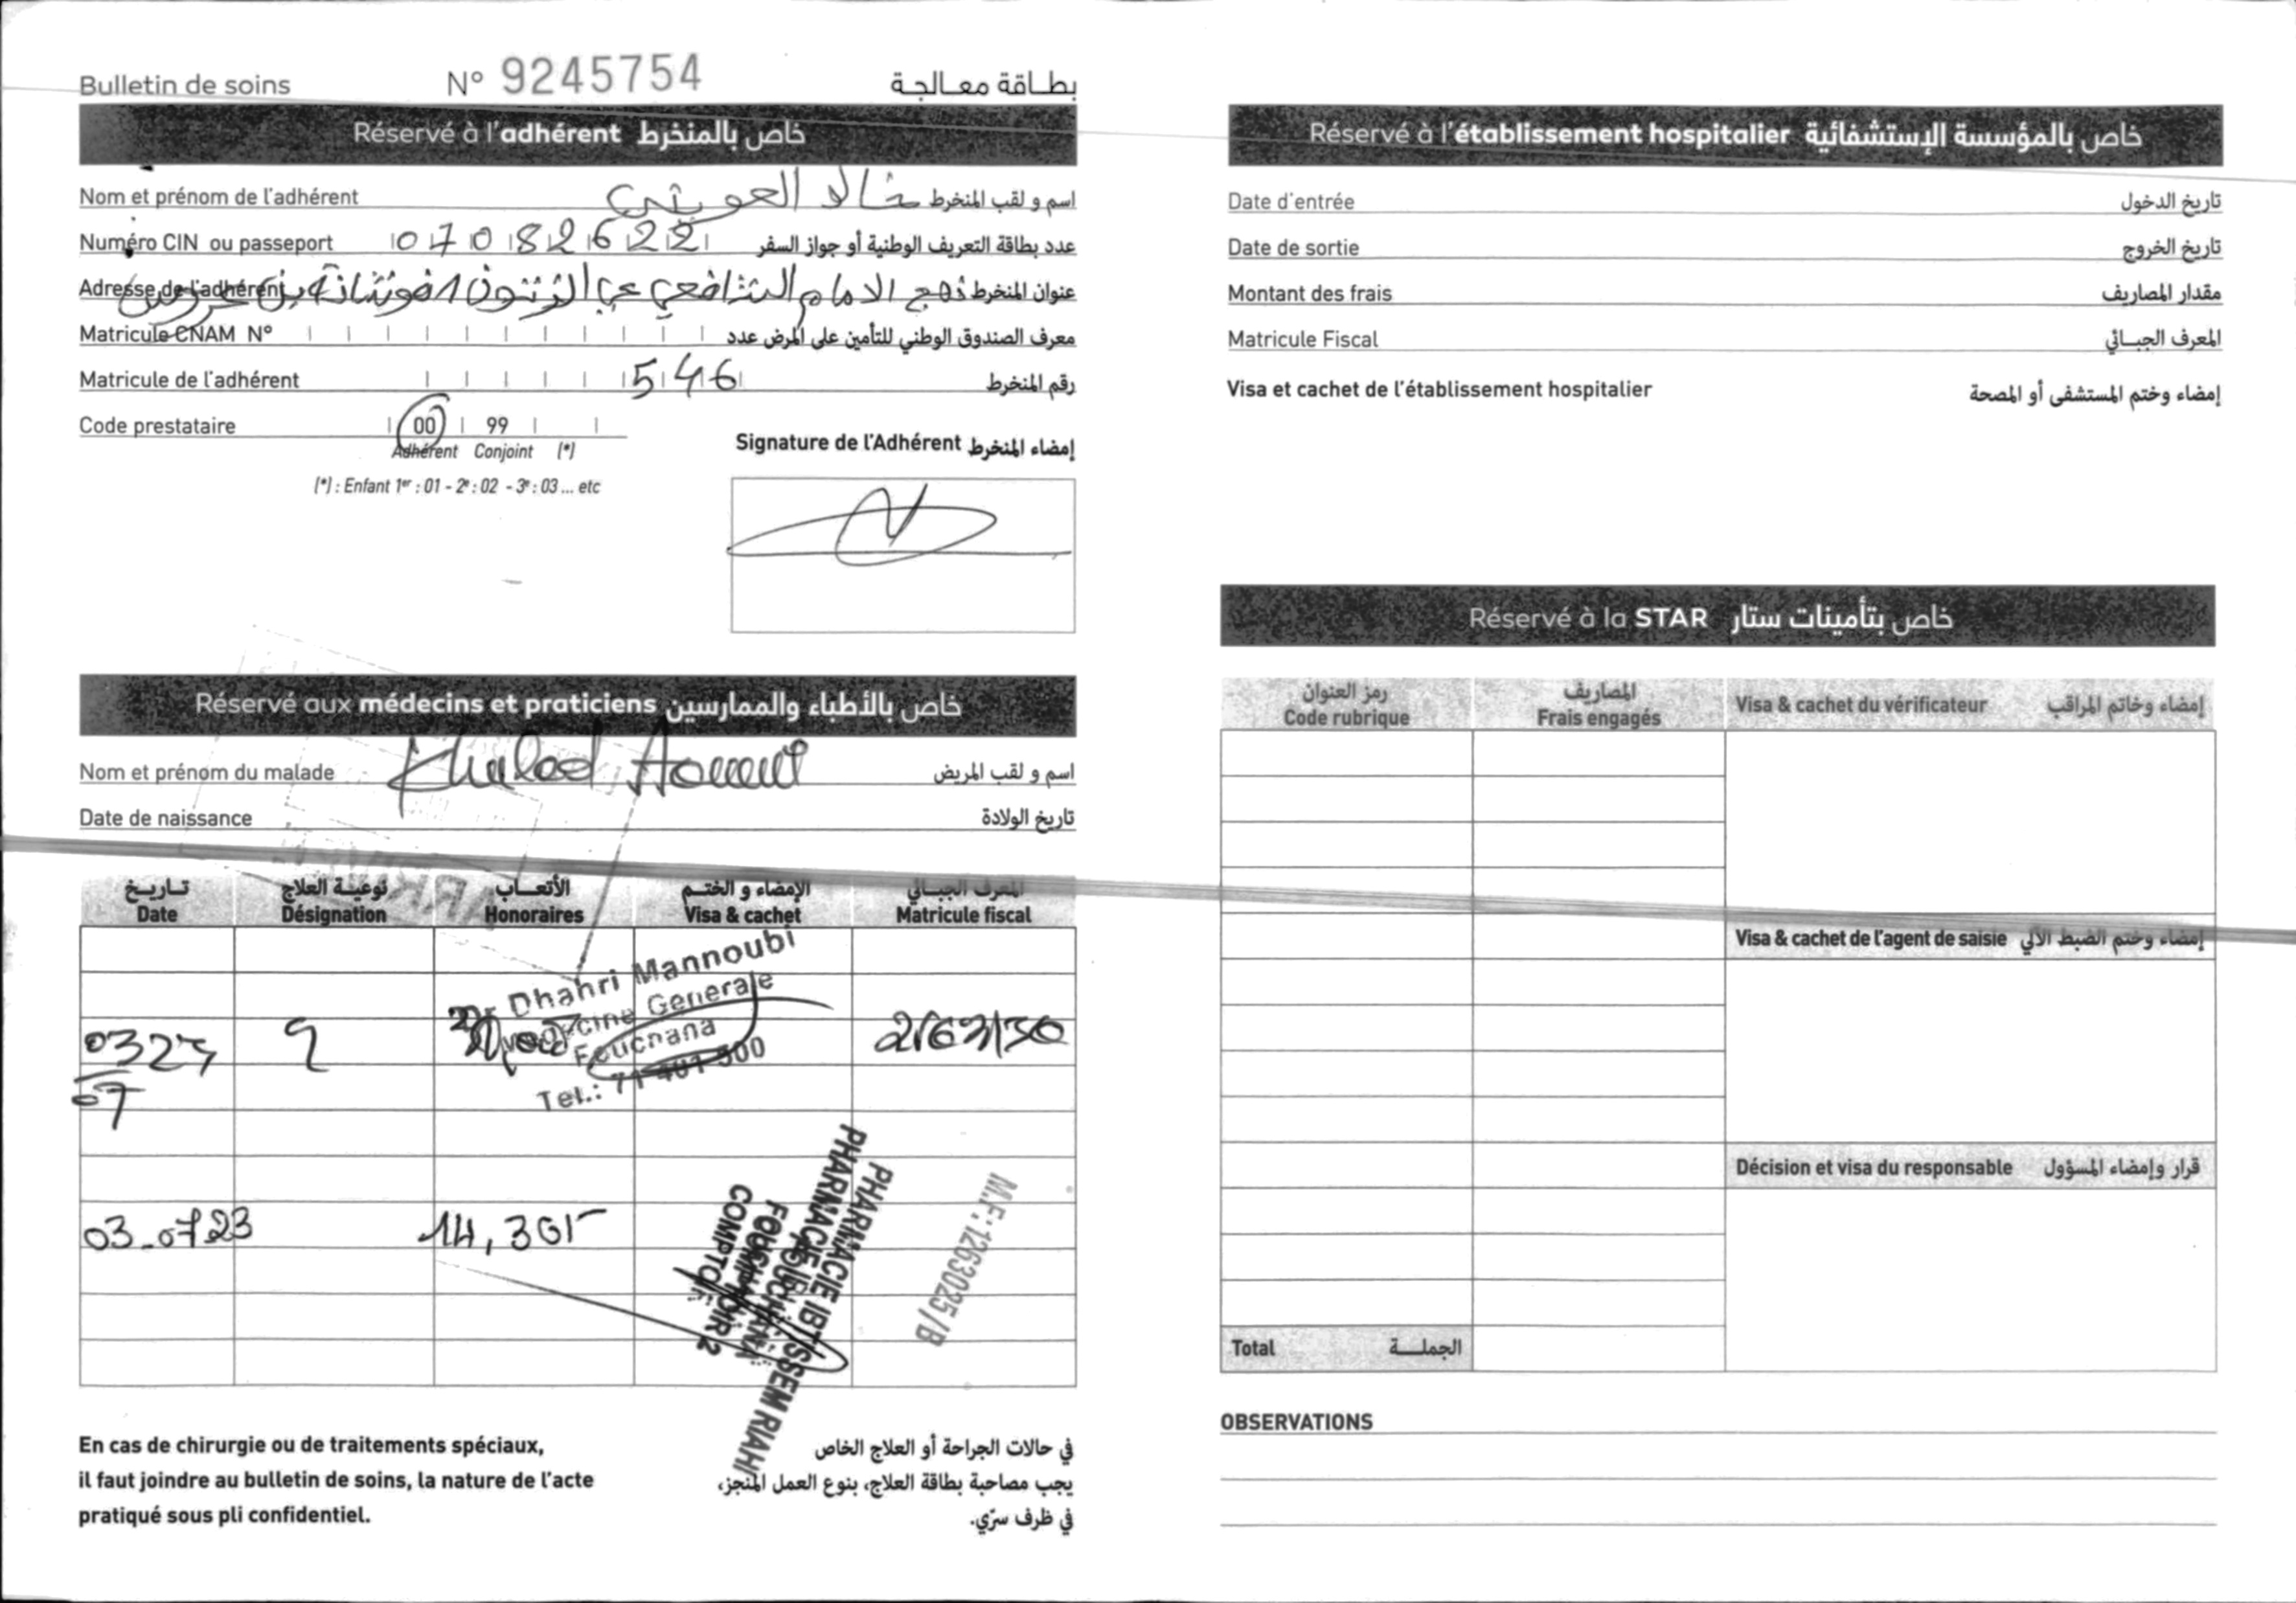 Bulletin de soins N° 9245754 بطاقة معالجة
Réservé à l'adhérent خاص بالمنخرط
Nom et prénom de l'adhérent خالد العويني اسم و لقب المنخرط
Numéro CIN ou passeport 07082622 عدد بطاقة التعريف الوطنية أو جواز السفر
Adresse de l'adhérent عنوان المنخرط نهج الامام الشافعي حي الزيتون 1 فوشانة بن عروس
Matricule CNAM N° معرف الصندوق الوطني للتأمين على المرض عدد
Matricule de l'adhérent 546 رقم المنخرط
Code prestataire 00 99
Adhérent Conjoint (*)
(*) : Enfant 1er : 01 - 2e : 02 - 3e : 03 ... etc
Signature de l'Adhérent إمضاء المنخرط
Réservé aux médecins et praticiens خاص بالأطباء والممارسين
Nom et prénom du malade Khaled Aouini اسم و لقب المريض
Date de naissance تاريخ الولادة
تاريخ نوعية العلاج الأتعاب الإمضاء و الختم المعرف الجبائي
Date Désignation Honoraires Visa & cachet Matricule fiscal
Dr Dhahri Mannoubi
Medecine Generale
Fouchana
Tel.: 71 401 500
03.07.23 14,301
PHARMACIE IBTISSEM RIAHI
FOUCHANA
COMPTOIR 2
M.F: 1263025/B
En cas de chirurgie ou de traitements spéciaux,
il faut joindre au bulletin de soins, la nature de l'acte
pratiqué sous pli confidentiel.
في حالات الجراحة أو العلاج الخاص
يجب مصاحبة بطاقة العلاج، بنوع العمل المنجز،
في ظرف سرّي.
Réservé à l'établissement hospitalier خاص بالمؤسسة الإستشفائية
Date d'entrée تاريخ الدخول
Date de sortie تاريخ الخروج
Montant des frais مقدار المصاريف
Matricule Fiscal المعرف الجبائي
Visa et cachet de l'établissement hospitalier إمضاء وختم المستشفى أو المصحة
Réservé à la STAR خاص بتأمينات ستار
رمز العنوان المصاريف
Code rubrique Frais engagés Visa & cachet du vérificateur إمضاء وخاتم المراقب
Visa & cachet de l'agent de saisie إمضاء وختم الضبط الآلي
Décision et visa du responsable قرار وإمضاء المسؤول
Total الجملة
OBSERVATIONS